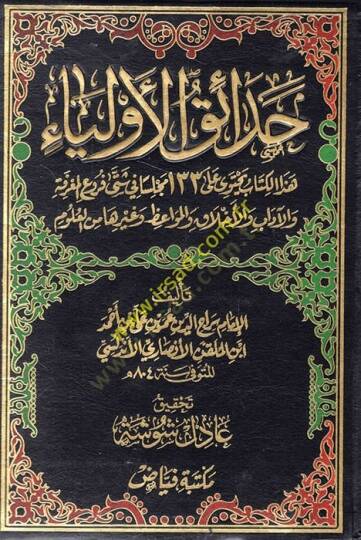 حدائق الأولياء
المسمى
هذا الكتاب يحتوى على ١٣٣ مجلسا في شتى فروع المعرفة
والآداب والأخلاق والمواعظ وغيرها من العلوم
تأليف
الإمام سراج الدين عمر بن علي بن أحمد
ابن الملقن الأنصاري الأندلسي
المتوفى سنة ٨٠٤هـ
تحقيق
عادل شوشة
مكتبة فياض
www.irsad.com.tr